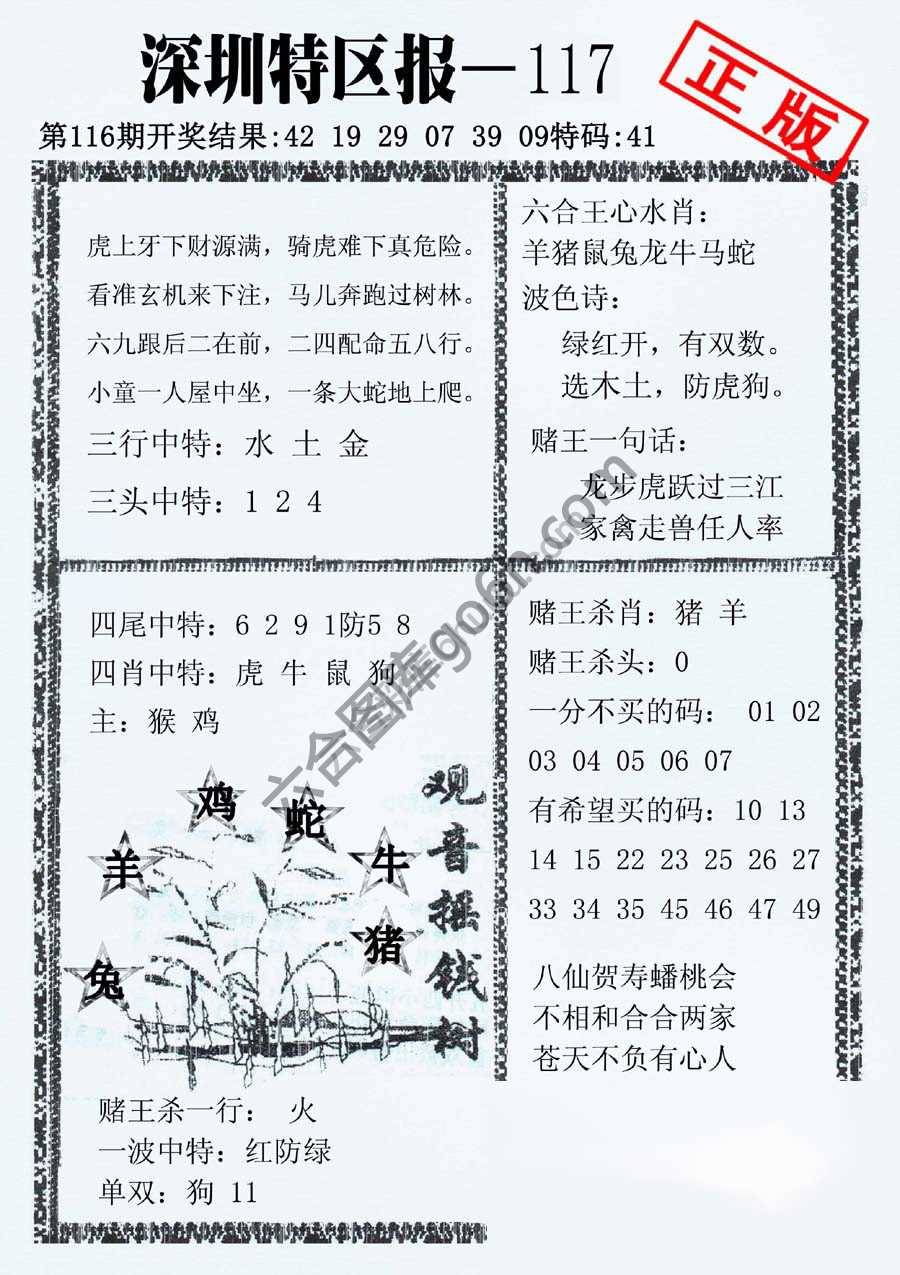 深圳特区报—117
正版
第116期开奖结果:42 19 29 07 39 09特码:41
虎上牙下财源满，骑虎难下真危险。
看准玄机来下注，马儿奔跑过树林。
六九跟后二在前，二四配命五八行。
小童一人屋中坐，一条大蛇地上爬。
三行中特：水 土 金
三头中特：1 2 4
六合王心水肖：
羊猪鼠兔龙牛马蛇
波色诗：
绿红开，有双数。
选木土，防虎狗。
赌王一句话：
龙步虎跃过三江
家禽走兽任人率
四尾中特：6 2 9 1防5 8
四肖中特：虎 牛 鼠 狗
主：猴 鸡
鸡
蛇
羊
牛
猪
兔
观音摇钱树
赌王杀一行： 火
一波中特：红防绿
单双：狗 11
赌王杀肖：猪 羊
赌王杀头：0
一分不买的码： 01 02
03 04 05 06 07
有希望买的码：10 13
14 15 22 23 25 26 27
33 34 35 45 46 47 49
八仙贺寿蟠桃会
不相和合合两家
苍天不负有心人